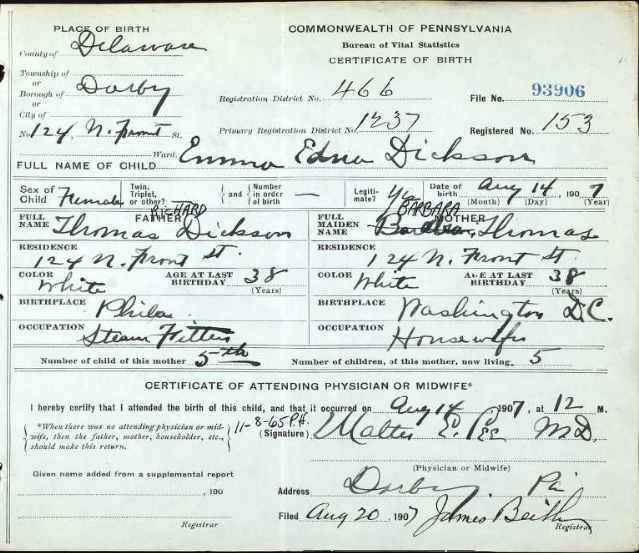 PLACE OF BIRTH
COMMONWEALTH OF PENNSYLVANIA
County of Delaware
Bureau of Vital Statistics
CERTIFICATE OF BIRTH
Township of
or
Borough of Darby
or
City of
Registration District No. 466
File No. 93906
No. 124 N. Front St.
Primary Registration District No. 1237
Registered No. 153
Ward.
FULL NAME OF CHILD Emma Edna Dickson
Sex of Child Female
Twin, Triplet, or other?
and Number in order of birth
Legiti-mate? Yes
Date of birth Aug 14 1907
(Month) (Day) (Year)
FATHER
FULL NAME Thomas RICHARD Dickson
MOTHER
FULL MAIDEN NAME BARBARA Thomas
RESIDENCE 124 N. Front St.
RESIDENCE 124 N. Front St.
COLOR White AGE AT LAST BIRTHDAY 38 (Years)
COLOR White AGE AT LAST BIRTHDAY 38 (Years)
BIRTHPLACE Phila
BIRTHPLACE Washington D.C.
OCCUPATION Steam Fitter
OCCUPATION Housewife
Number of child of this mother 5th
Number of children, of this mother, now living 5
CERTIFICATE OF ATTENDING PHYSICIAN OR MIDWIFE*
I hereby certify that I attended the birth of this child, and that it occurred on Aug 14 1907, at 12 M.
*When there was no attending physician or mid-
wife, then the father, mother, householder, etc.,
should make this return.
11-8-65 P.H.
(Signature) Walter E. M.D.
(Physician or Midwife)
Given name added from a supplemental report
, 190
Registrar
Address Darby Pa
Filed Aug 20, 1907 James Beith
Registrar